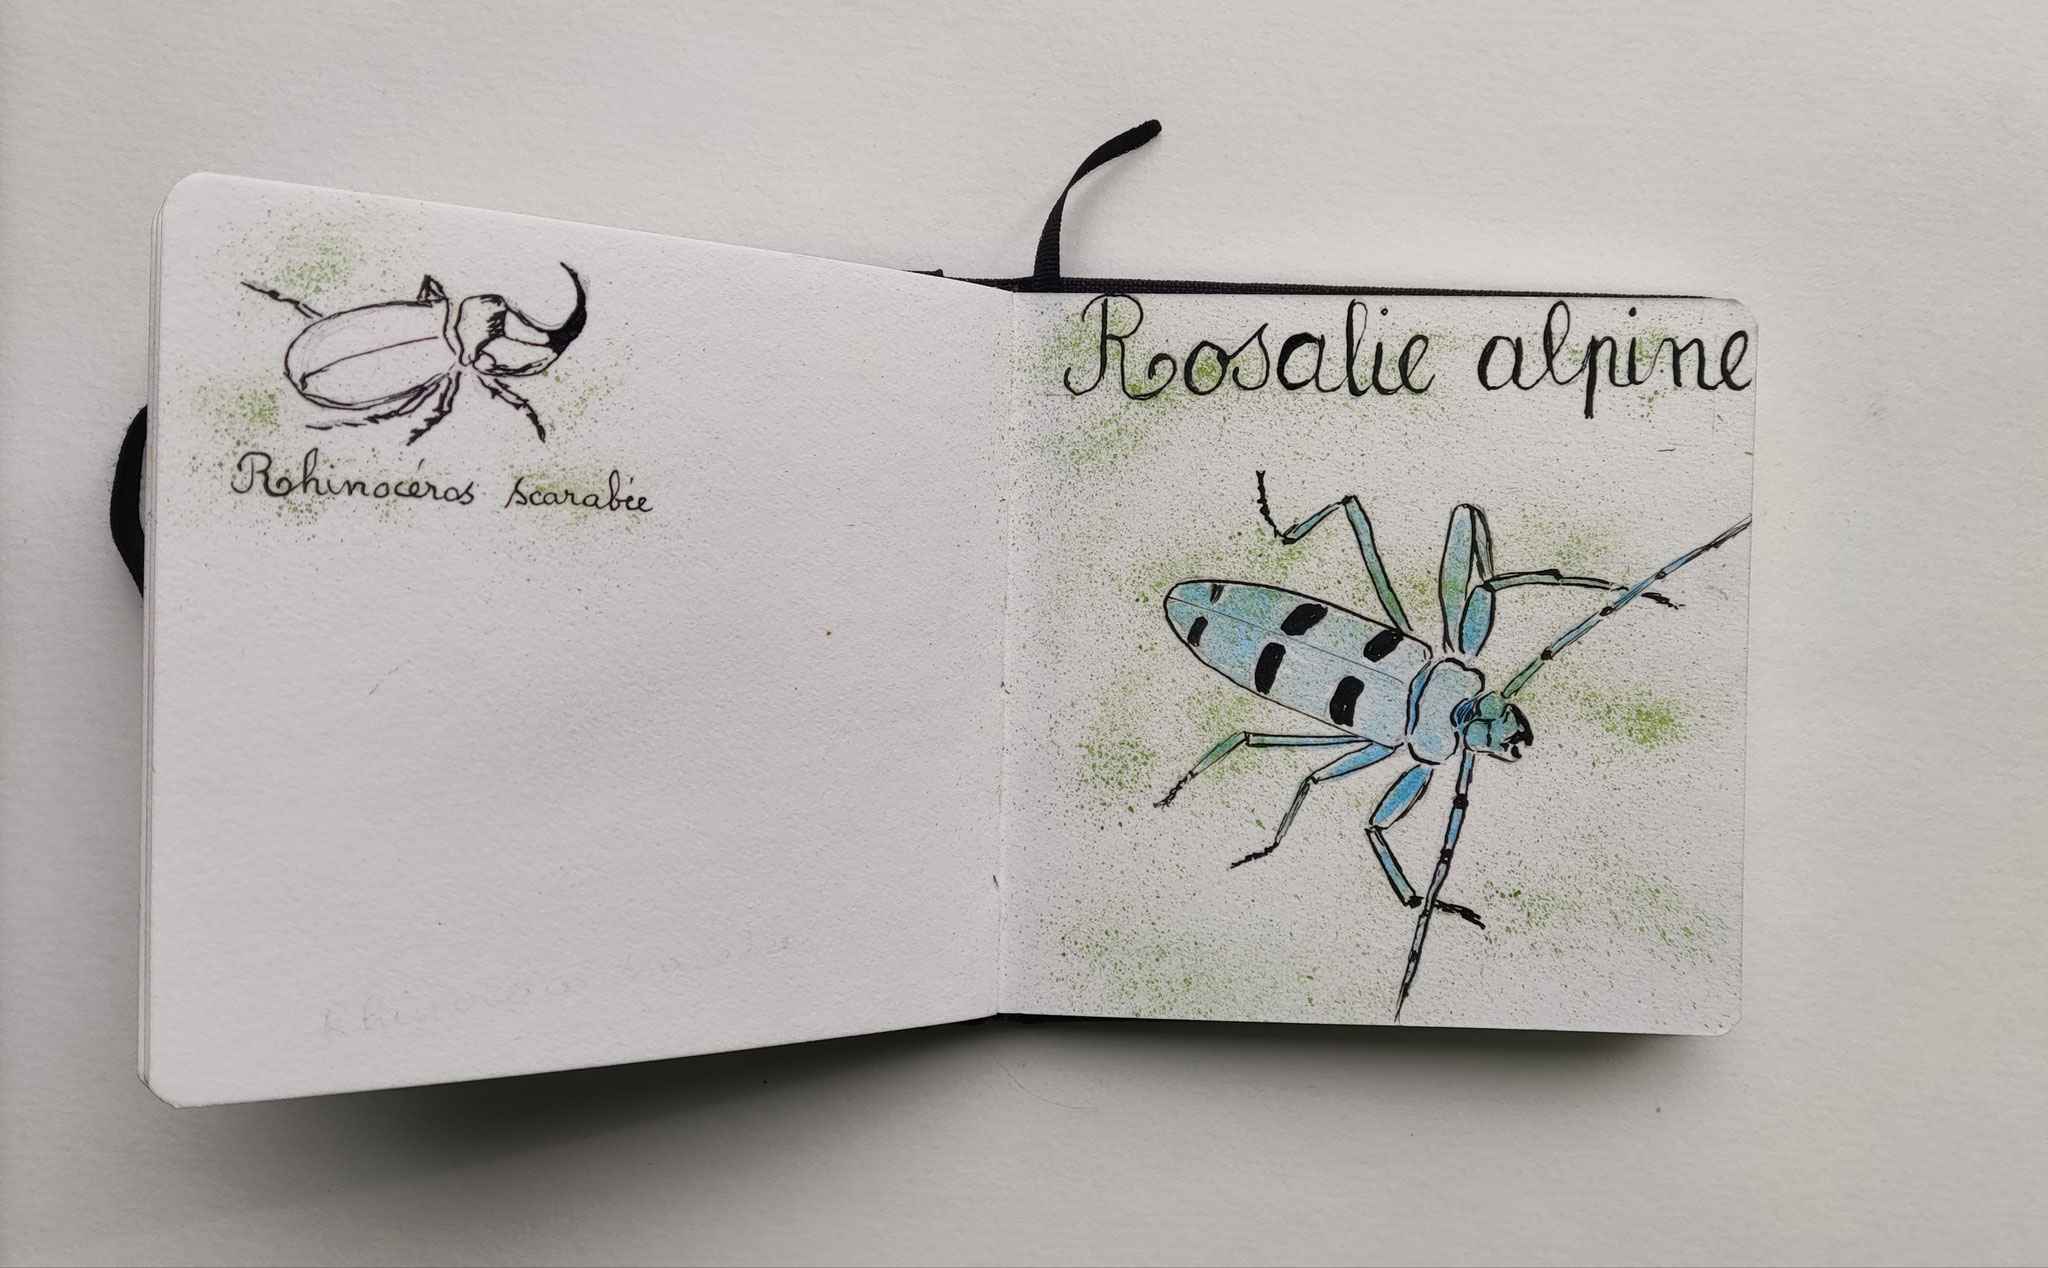 Rhinocéros scarabée
Rosalie alpine